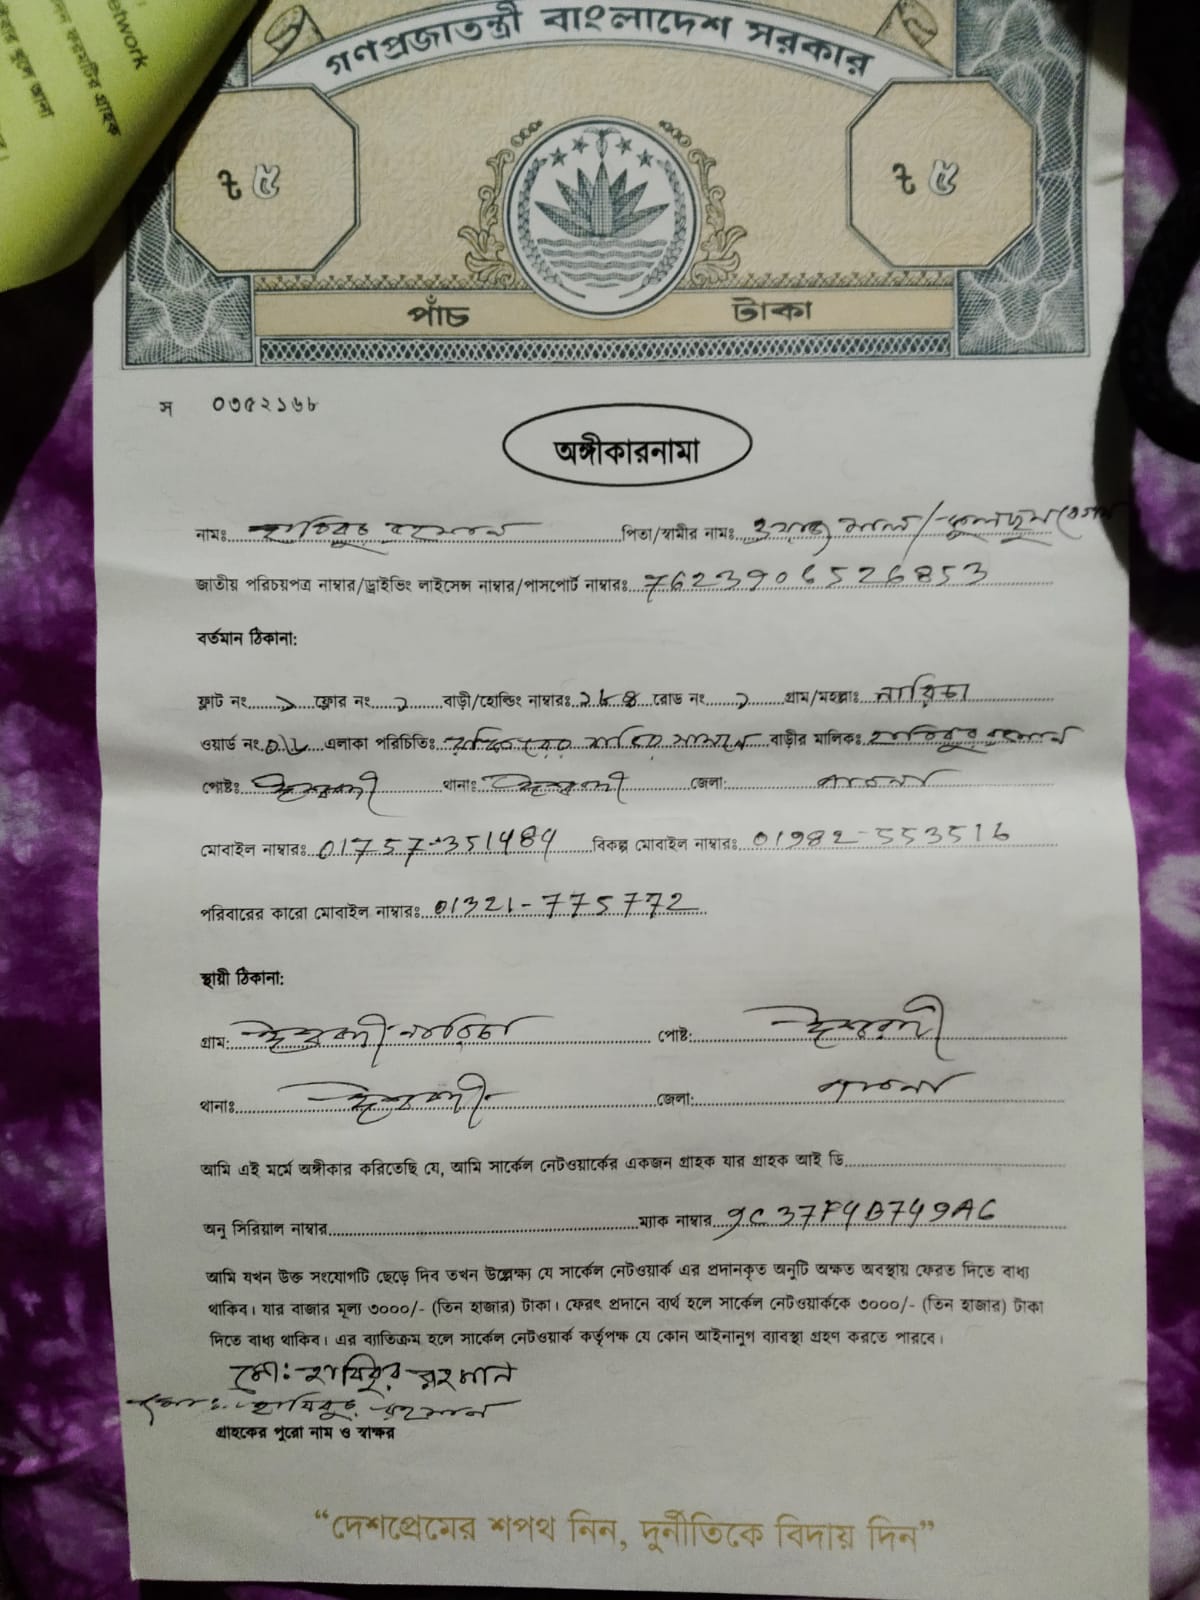 etwork
গণপ্রজাতন্ত্রী বাংলাদেশ সরকার
৳ ৫ ৳ ৫
পাঁচ টাকা
স ০৩৫২১৬৮
অঙ্গীকারনামা
নামঃ হাবিবুর রহমান পিতা/স্বামীর নামঃ
জাতীয় পরিচয়পত্র নাম্বার/ড্রাইভিং লাইসেন্স নাম্বার/পাসপোর্ট নাম্বারঃ 7623906526853
বর্তমান ঠিকানা:
ফ্লাট নং ১ ফ্লোর নং ১ বাড়ী/হোল্ডিং নাম্বারঃ রোড নং ১ গ্রাম/মহল্লাঃ নারিচা
ওয়ার্ড নং এলাকা পরিচিতিঃ বাড়ীর মালিকঃ হাবিবুর রহমান
পোষ্টঃ ঈশ্বরদী থানাঃ ঈশ্বরদী জেলা: পাবনা
মোবাইল নাম্বারঃ 01757-351484 বিকল্প মোবাইল নাম্বারঃ 01982-553516
পরিবারের কারো মোবাইল নাম্বারঃ 01321-775772
স্থায়ী ঠিকানা:
গ্রাম: ঈশ্বরদী নারিচা পোষ্ট: ঈশ্বরদী
থানাঃ ঈশ্বরদী জেলা: পাবনা
আমি এই মর্মে অঙ্গীকার করিতেছি যে, আমি সার্কেল নেটওয়ার্কের একজন গ্রাহক যার গ্রাহক আই ডি
অনু সিরিয়াল নাম্বার ম্যাক নাম্বার 9C37F4B749A6
আমি যখন উক্ত সংযোগটি ছেড়ে দিব তখন উল্লেক্ষ্য যে সার্কেল নেটওয়ার্ক এর প্রদানকৃত অনুটি অক্ষত অবস্থায় ফেরত দিতে বাধ্য
থাকিব। যার বাজার মূল্য ৩০০০/- (তিন হাজার) টাকা। ফেরৎ প্রদানে ব্যর্থ হলে সার্কেল নেটওয়ার্ককে ৩০০০/- (তিন হাজার) টাকা
দিতে বাধ্য থাকিব। এর ব্যাতিক্রম হলে সার্কেল নেটওয়ার্ক কর্তৃপক্ষ যে কোন আইনানুগ ব্যাবস্থা গ্রহণ করতে পারবে।
মো: হাবিবুর রহমান
মো: হাবিবুর রহমান
গ্রাহকের পুরো নাম ও স্বাক্ষর
“দেশপ্রেমের শপথ নিন, দুর্নীতিকে বিদায় দিন”